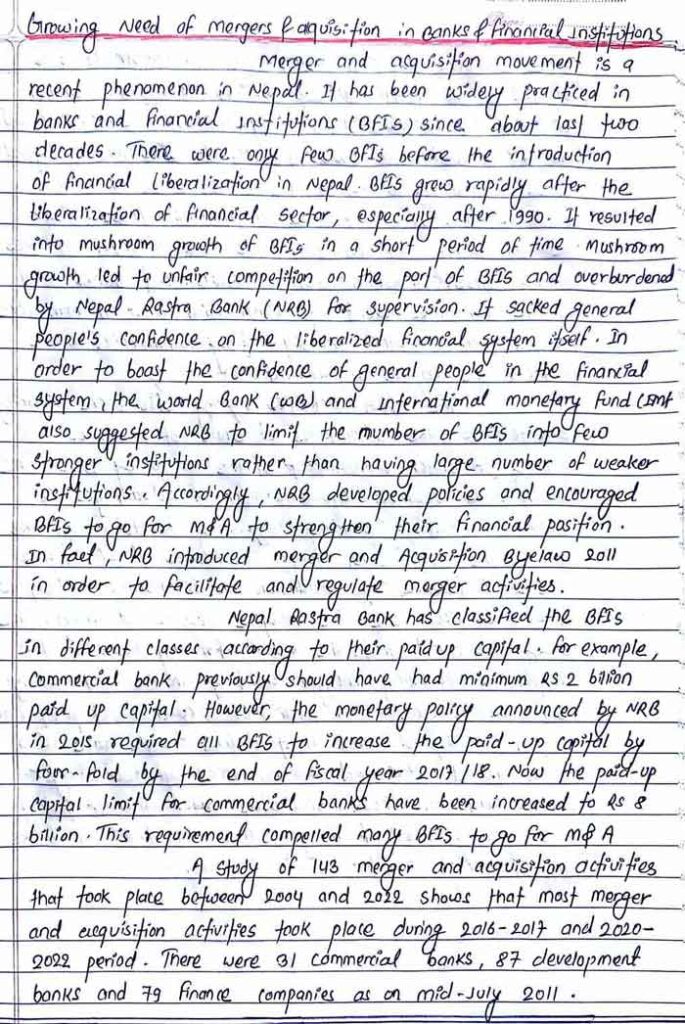 Growing Need of mergers & aquisition in Banks & financial institutions
Merger and acquisition movement is a
recent phenomenon in Nepal. It has been widely practiced in
banks and financial institutions (BFIs) since about last two
decades. There were only few BFIs before the introduction
of financial liberalization in Nepal. BFIs grew rapidly after the
liberalization of financial sector, especially after 1990. It resulted
into mushroom growth of BFIs in a short period of time mushroom
growth led to unfair competition on the part of BFIs and overburdened
by Nepal Rastra Bank (NRB) for supervision. It sacked general
people's confidence on the liberalized financial system itself. In
order to boast the confidence of general people in the financial
system, the world Bank (WB) and International monetary fund (IMF
also suggested NRB to limit the mumber of BFIs into few
stronger institutions rather than having large number of weaker
institutions. Accordingly, NRB developed policies and encouraged
BFIs to go for M&A to strengthen their financial position.
In fact, NRB introduced merger and Acquisition Byelaw 2011
in order to facilitate and regulate merger activities.
Nepal Rastra Bank has classified the BFIs
in different classes according to their paid up capital. for example,
commercial bank previously should have had minimum RS 2 billion
paid up capital. However, the monetary policy announced by NRB
in 2015 required all BFIs to increase the paid-up capital by
four-fold by the end of fiscal year 2017/18. Now the paid-up
capital limit for commercial banks have been increased to RS 8
billion. This requirement compelled many BFIs to go for M&A
A study of 143 merger and acquisition activities
that took place between 2004 and 2022 shows that most merger
and acquisition activities took place during 2016-2017 and 2020-
2022 period. There were 31 commercial banks, 87 development
banks and 79 finance companies as on mid-July 2011.